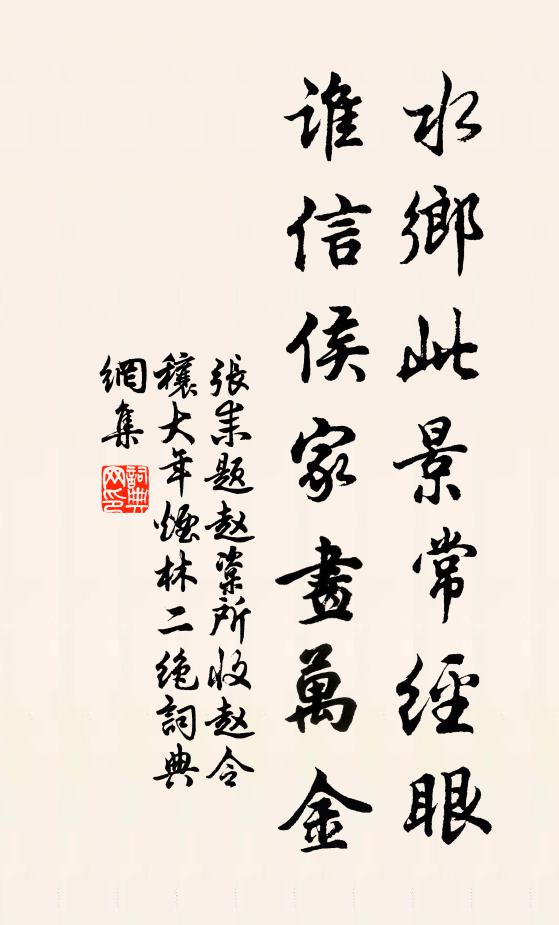 水鄉此景常經眼
誰信侯家畫萬金
張耒題趙㮚所收趙令
穰大年煙林二絶詞典
網集
詞典
网印